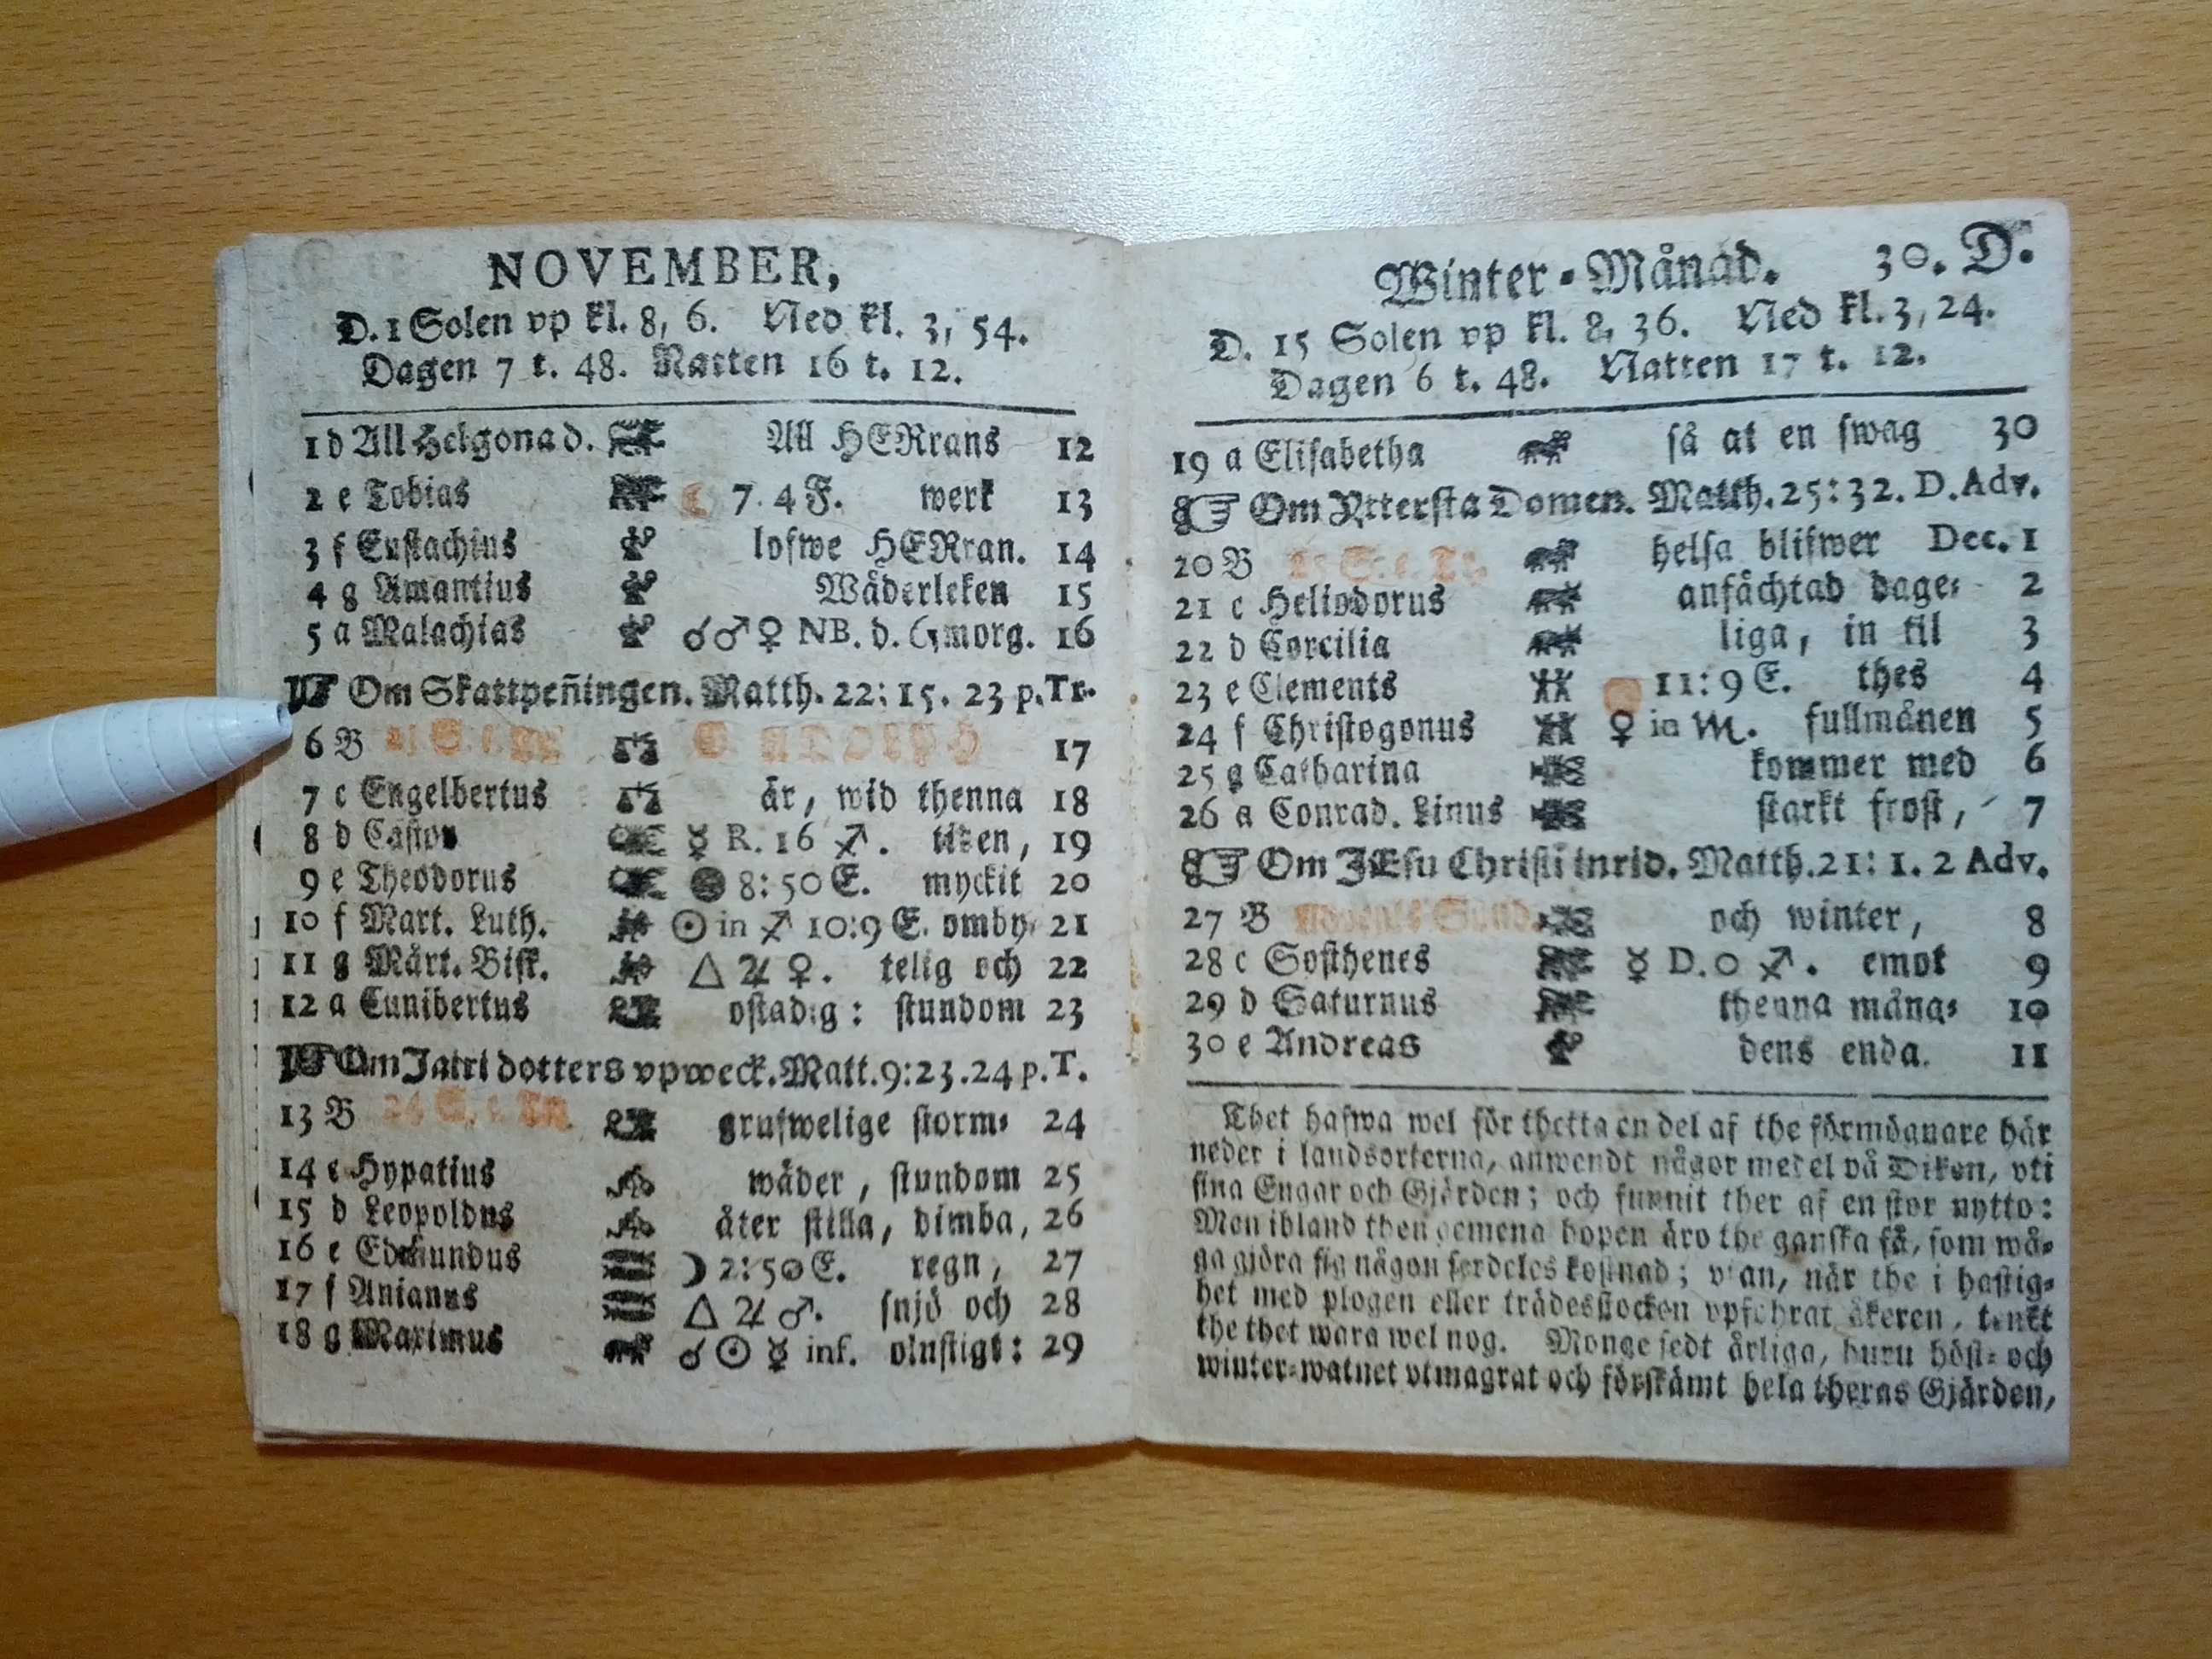 NOVEMBER,
D. 1 Solen vp kl. 8, 6. Ned kl. 3, 54.
Dagen 7 t. 48. Natten 16 t. 12.
1 d All Helgonad. All HERrans 12
2 e Tobias ☾ 7. 4 F. werk 13
3 f Eustachius lofwe HERran. 14
4 g Amantius Wäderleken 15
5 a Malachias ☌ ♂ ♀ NB. d. 6 morg. 16
☞ Om Skattpeñingen. Matth. 22: 15. 23 p. Tr.
6 B 23 S. e. Tr. G. ADOLPH 17
7 c Engelbertus är, wid thenna 18
8 d Castor ☿ R. 16 ♐. tiden, 19
9 e Theodorus ● 8: 50 E. myckit 20
10 f Mart. Luth. ☉ in ♐ 10:9 E. omby⸗ 21
11 g Mårt. Bisk. △ ♃ ♀. telig och 22
12 a Cunibertus ostadig: stundom 23
☞ Om Jairi dotters vpweck. Matt. 9: 23. 24 p. T.
13 B 24 S. e. Tr. grufwelige storm⸗ 24
14 c Hypatius wäder, stundom 25
15 d Leopoldus åter stilla, dimba, 26
16 e Edmundus ☽ 2: 50 E. regn, 27
17 f Anianus △ ♃ ♂. snjö och 28
18 g Maximus ☌ ☉ ☿ inf. olustigt: 29
Winter⸗Månad. 30. D.
D. 15 Solen vp kl. 8, 36. Ned kl. 3, 24.
Dagen 6 t. 48. Natten 17 t. 12.
19 a Elisabetha så at en swag 30
☞ Om Yttersta Domen. Matth. 25: 32. D. Adv.
20 B 25 S. e. Tr. helsa blifwer Dec. 1
21 c Heliodorus anfächtad dage⸗ 2
22 d Corcilia liga, in til 3
23 e Clements 11: 9 E. thes 4
24 f Christogonus ♀ in ♏. fullmånen 5
25 g Catharina kommer med 6
26 a Conrad. Linus starkt frost, 7
☞ Om JEsu Christi inrid. Matth. 21: 1. 2 Adv.
27 B Advents Sönd. och winter, 8
28 c Sosthenes ☿ D. 0 ♐. emot 9
29 d Saturnus thenna måna⸗ 10
30 e Andreas dens enda. 11
Thet hafwa wel för thetta en del af the förmögnare här
neder i landsorterna, anwendt någor medel på Diken, vti
sina Engar och Gjärden; och funnit ther af en stor nytto:
Men ibland then gemena hopen äro the ganska få, som wå⸗
ga gjöra sig någon serdeles kostnad; vtan, när the i hastig⸗
het med plogen eller trädesstocken vpfohrat åkeren, tenkt
the thet wara wel nog. Monge sedt årliga, huru höst⸗ och
winter⸗watnet vtmagrat och förskämt hela theras Gjärden,